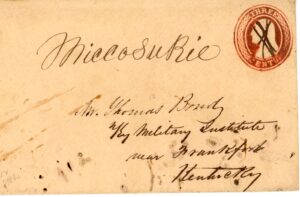 THREE
CENTS
Miccosukie
Mr. Thomas Bond
Ky Military Institute
near Frankfort
Kentucky